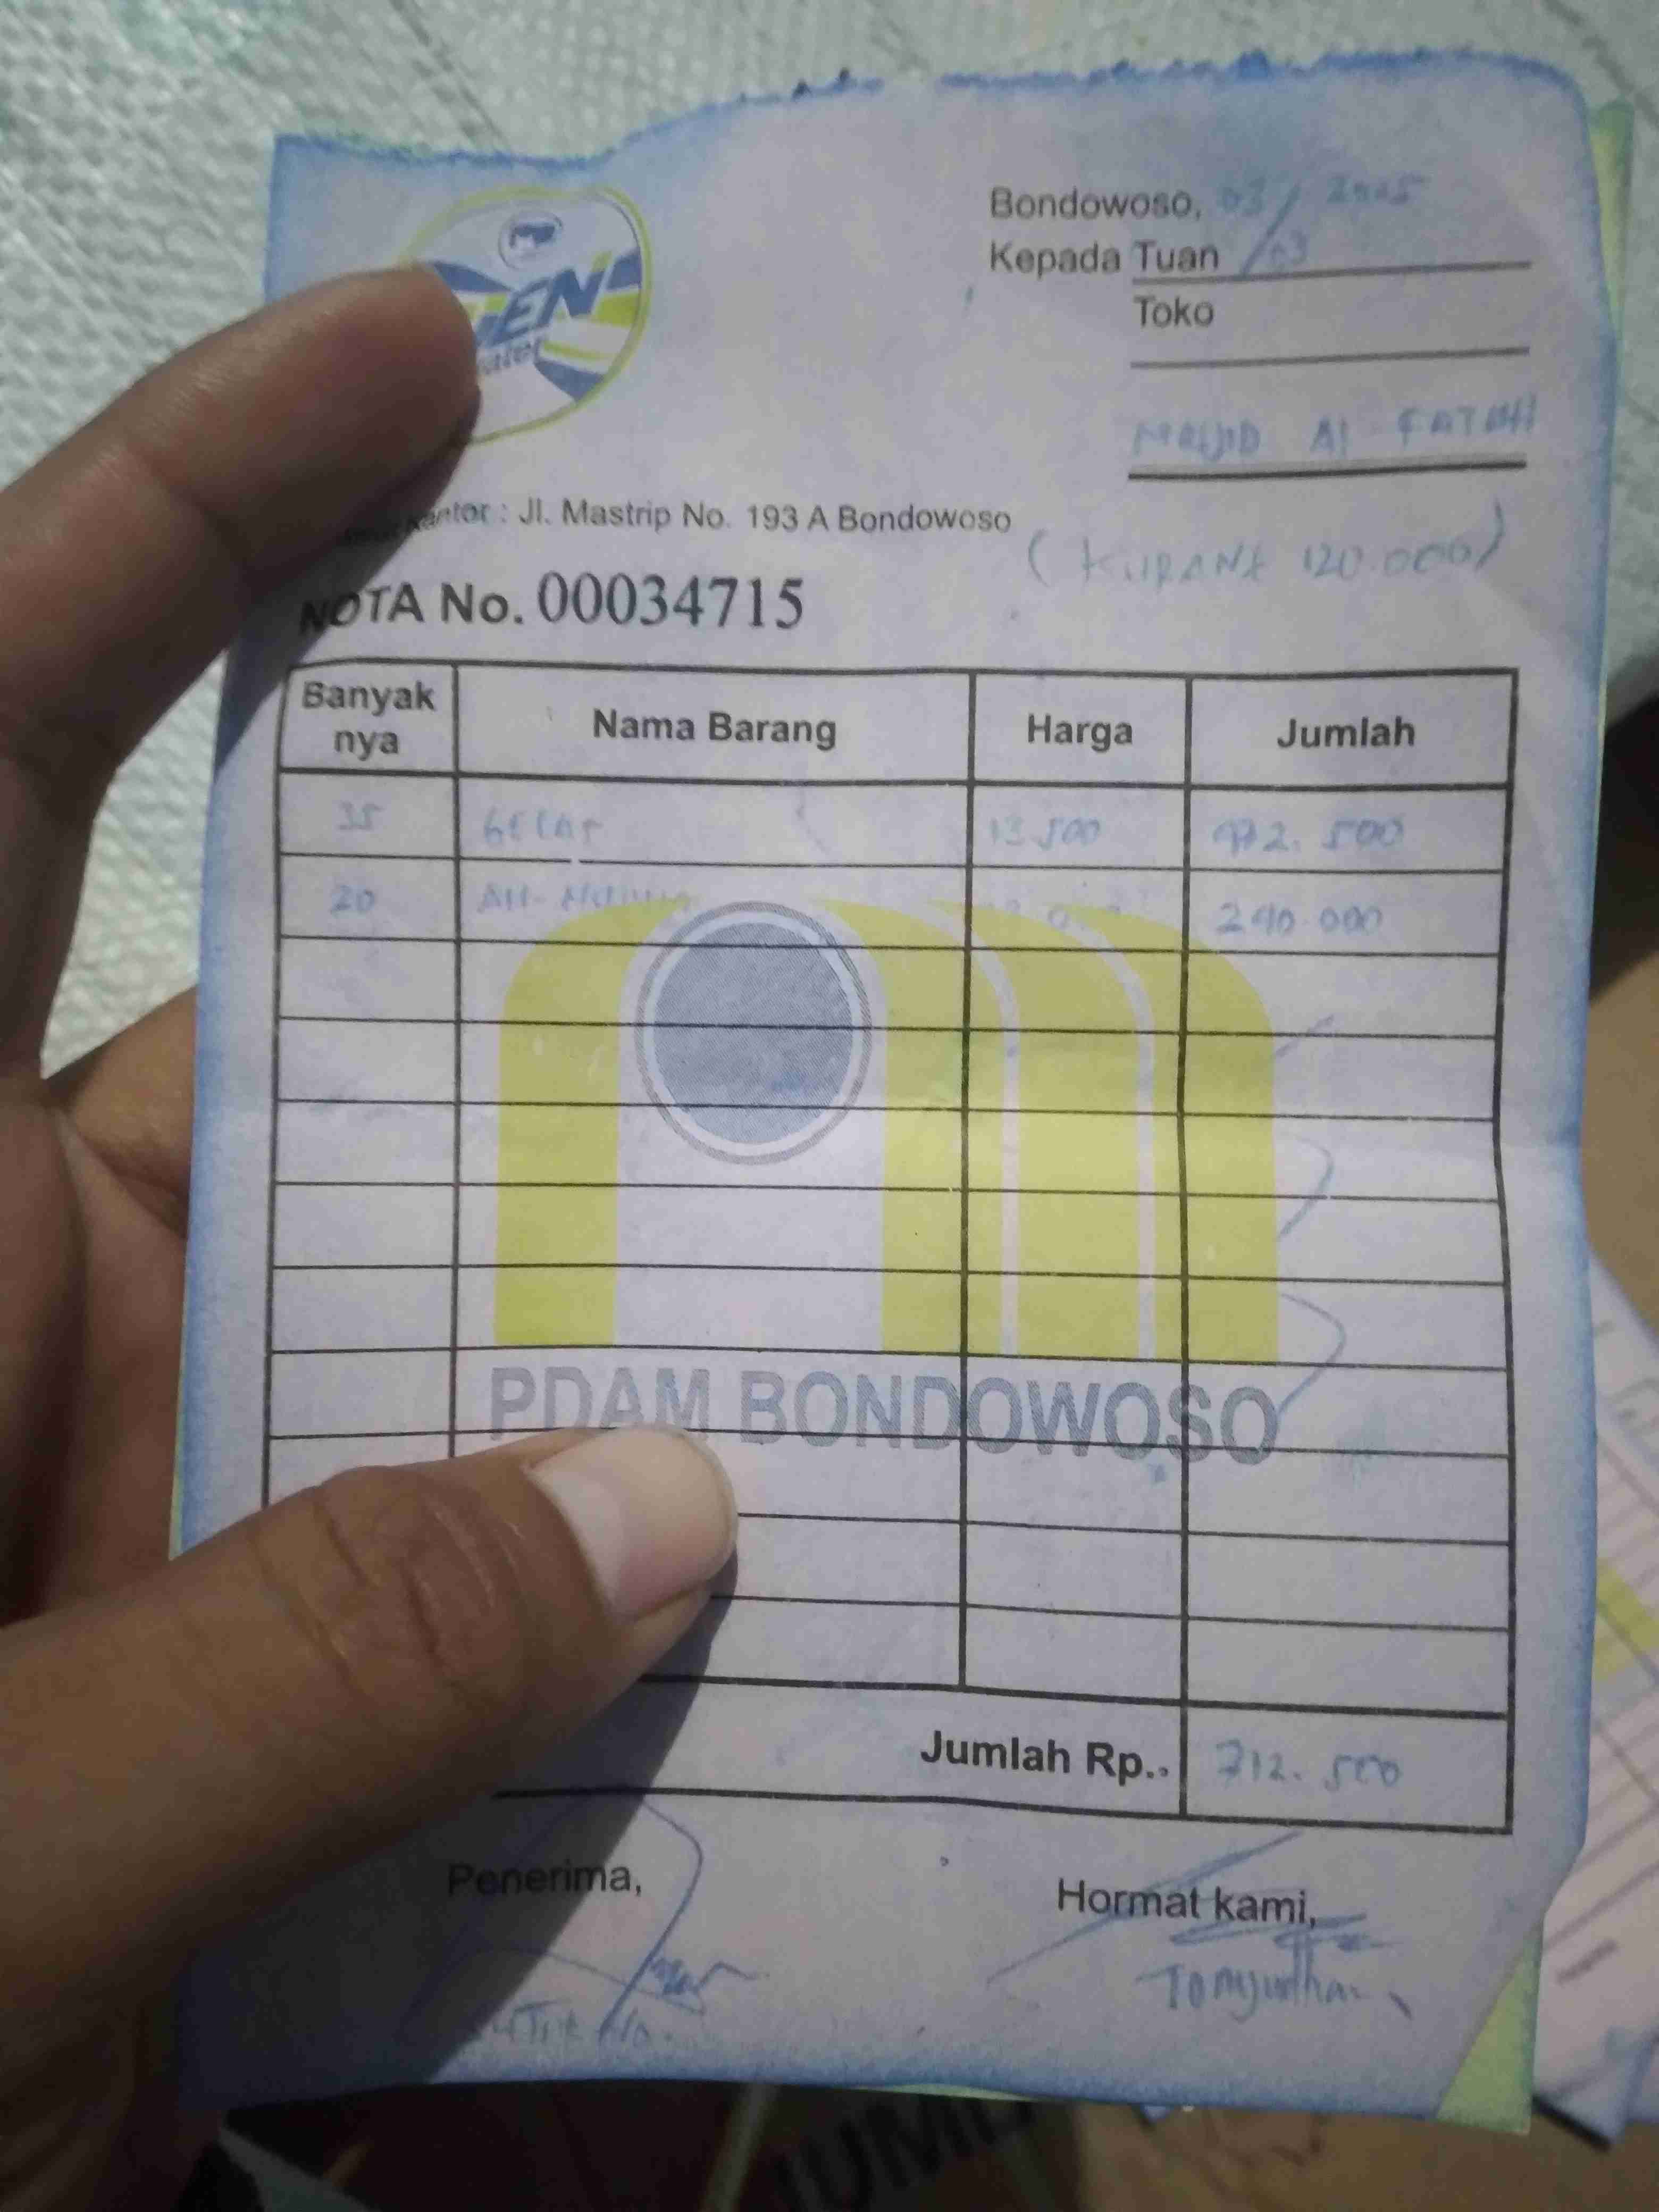 Bondowoso, 03/03 2025
Kepada Tuan
Toko
MASJID Al FATAH
Kantor : Jl. Mastrip No. 193 A Bondowoso
(KURANG 120.000)
NOTA No. 00034715
Banyak nya Nama Barang Harga Jumlah
35 GELAS 13.500 472.500
20 240.000
PDAM BONDOWOSO
Jumlah Rp.. 712.500
Penerima, Hormat kami,